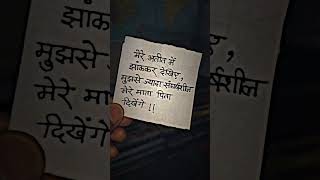 मेरे अतीत में
झाँककर देखिए,
मुझसे ज्यादा संघर्षशील
मेरे माता पिता
दिखेंगे !!